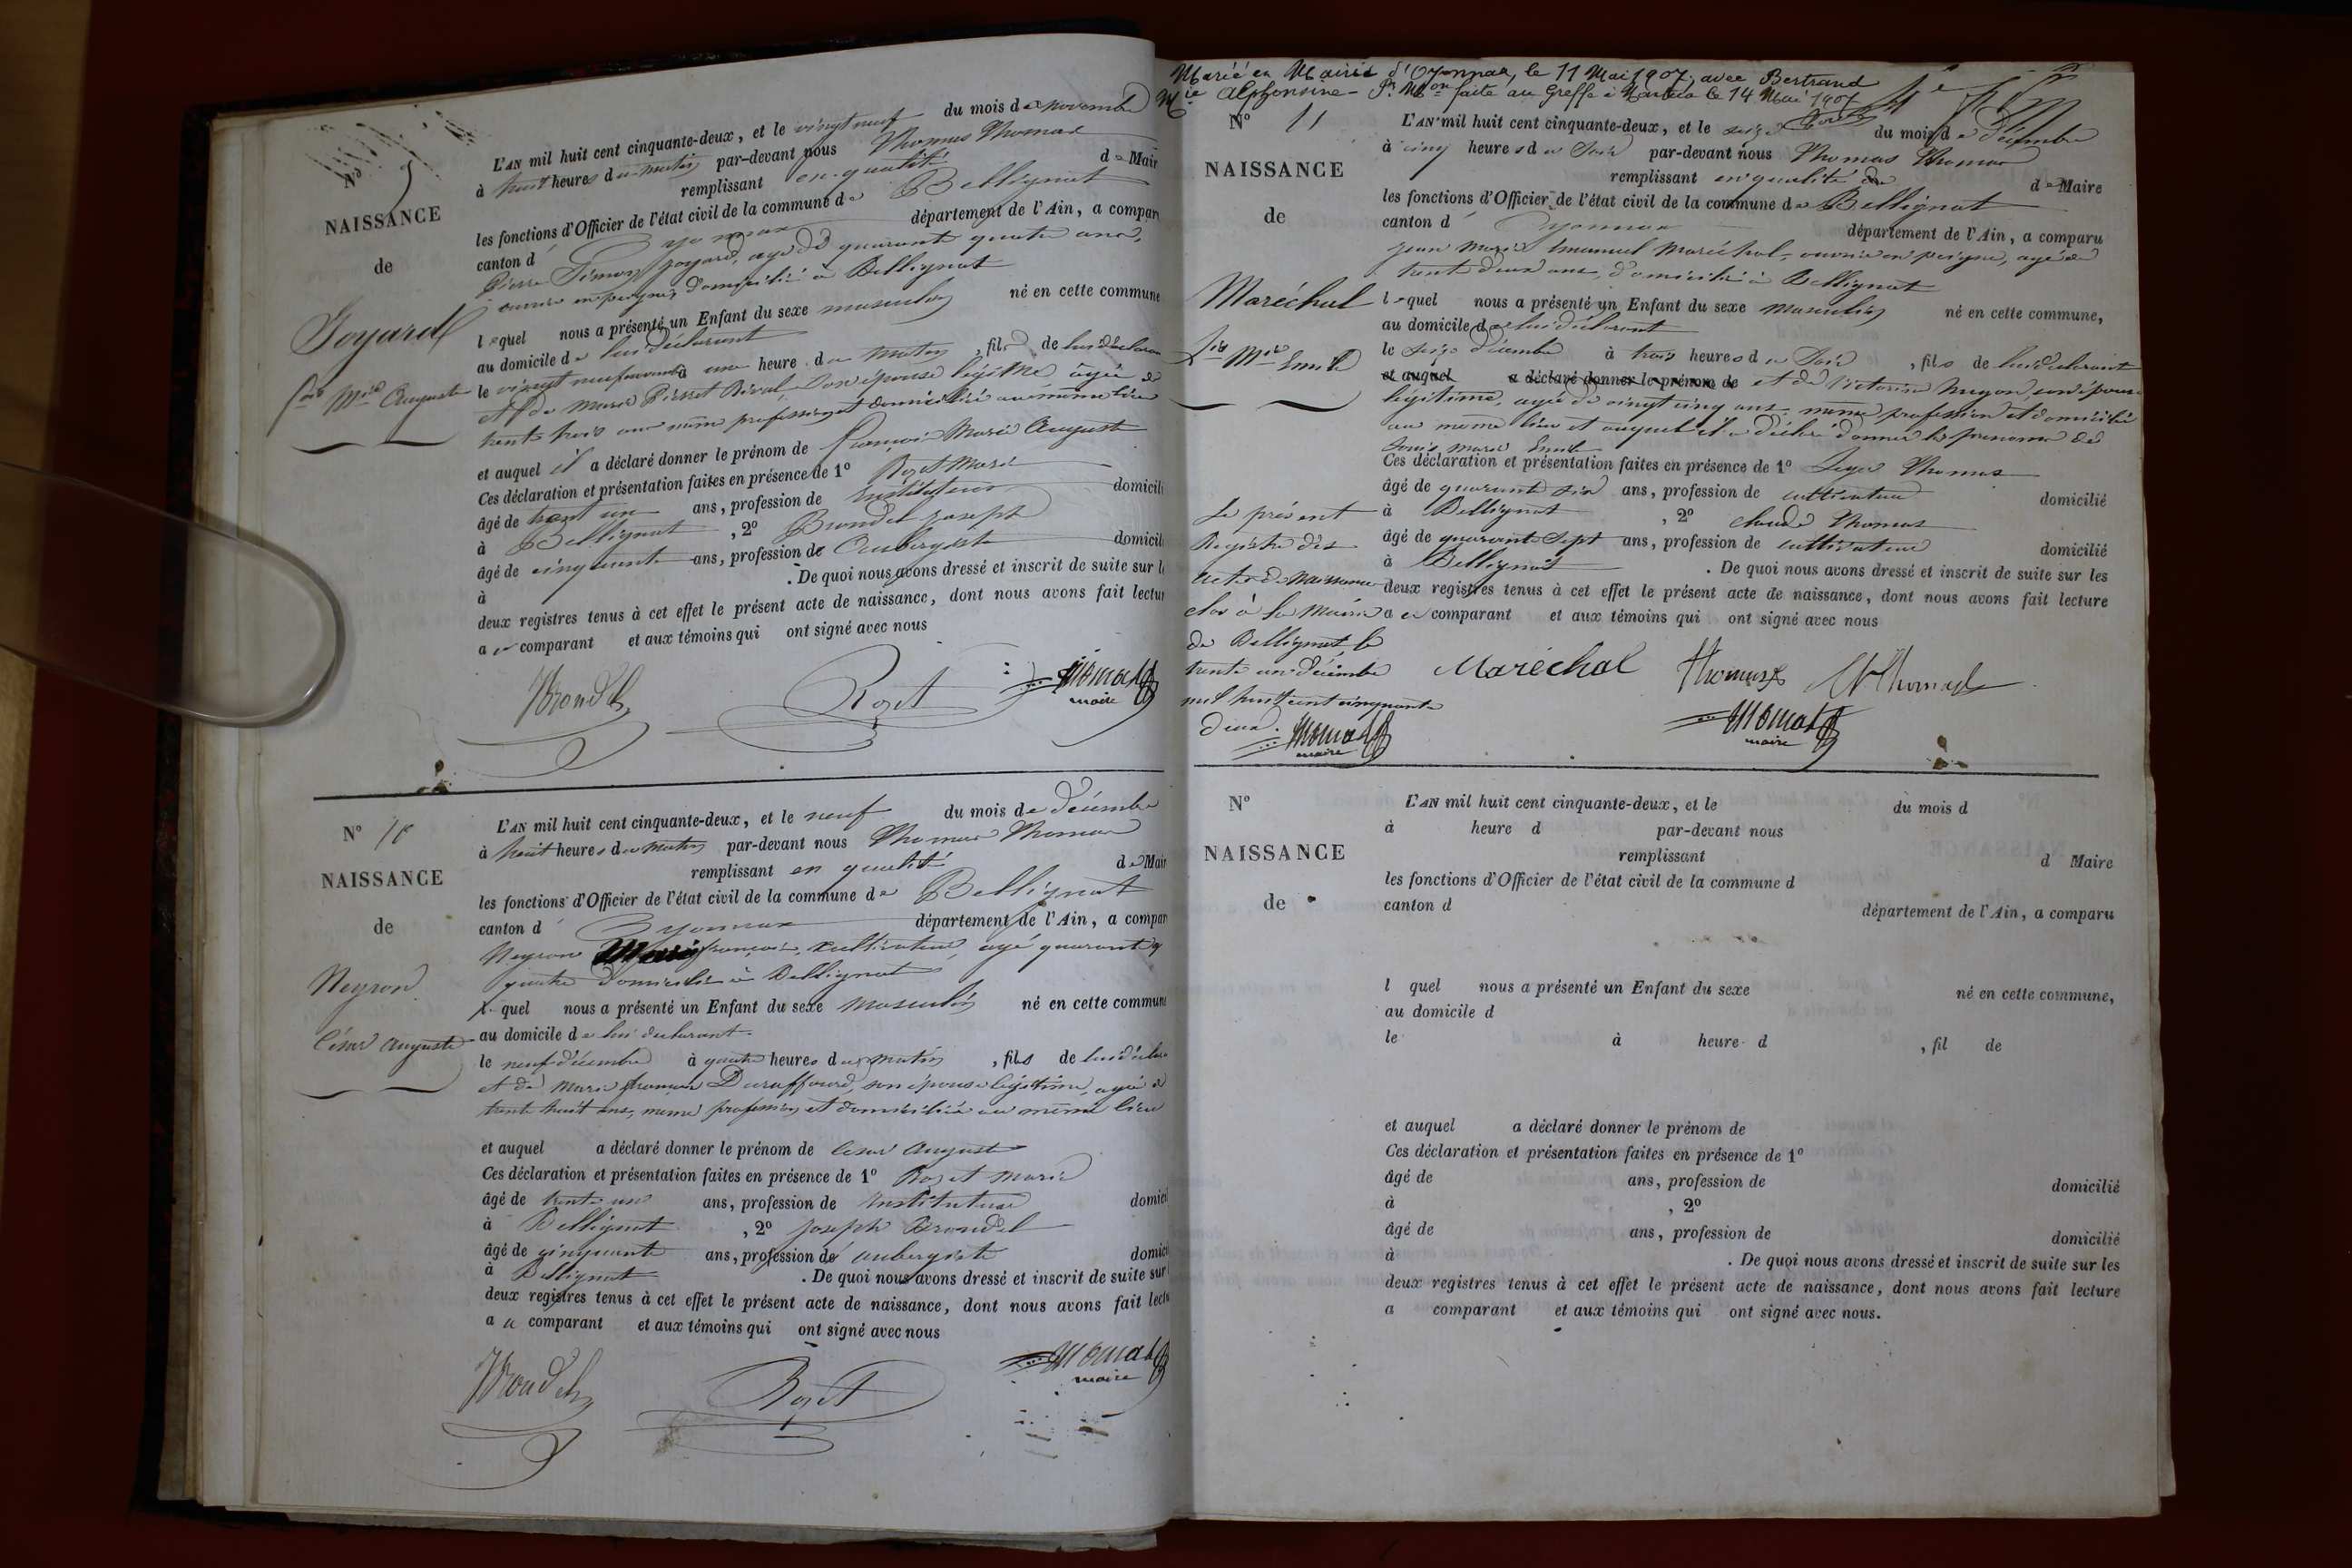 N° 9
NAISSANCE
de
Goyard
fois Mie Auguste
L'AN mil huit cent cinquante-deux, et le vingt neuf du mois de novembre
à huit heures du matin par-devant nous Thomas Thomas
remplissant en qualité de Mair
les fonctions d'Officier de l'état civil de la commune de Bellignat
canton d' Oyonnax département de l'Ain, a compar
Pierre Simon Goyard, agé de quarante quatre ans,
ouvrier en peignes domicilié à Bellignat
lequel nous a présenté un Enfant du sexe masculin né en cette commune
au domicile de lui déclarant
le vingt neuf novembre à une heure du matin, fils de lui déclarant
et de Marie Pierret son épouse légitime agée de
trente trois ans même profession et domiciliée au même lieu
et auquel il a déclaré donner le prénom de françois Marie Auguste
Ces déclaration et présentation faites en présence de 1° Rozet Marie
âgé de trent un ans, profession de Instituteur domicili
à Bellignat, 2° Brondel Joseph
âgé de cinquante ans, profession de Aubergiste domicili
à . De quoi nous avons dressé et inscrit de suite sur l
deux registres tenus à cet effet le présent acte de naissance, dont nous avons fait lectur
au comparant et aux témoins qui ont signé avec nous
Brondel Rozet Thomas
maire
N° 10
NAISSANCE
de
Neyron
César Auguste
L'AN mil huit cent cinquante-deux, et le neuf du mois de décembre
à huit heures du matin par-devant nous Thomas Thomas
remplissant en qualité de Mair
les fonctions d'Officier de l'état civil de la commune de Bellignat
canton d' Oyonnax département de l'Ain, a compar
Neyron françois, cultivateur, agé quarante
quatre domicilié à Bellignat
lequel nous a présenté un Enfant du sexe masculin né en cette commune
au domicile de lui déclarant
le neuf décembre à quatre heures du matin, fils de lui déclar
et de Marie françoise Duraffourd, son épouse légitime, agée de
trente huit ans, même profession et domiciliée au même lieu
et auquel a déclaré donner le prénom de César August
Ces déclaration et présentation faites en présence de 1° Rozet Marie
âgé de trente un ans, profession de Instituteur domicil
à Bellignat, 2° Joseph Brondel
âgé de cinquante ans, profession de aubergiste domici
à Bellignat . De quoi nous avons dressé et inscrit de suite sur
deux registres tenus à cet effet le présent acte de naissance, dont nous avons fait lectu
au comparant et aux témoins qui ont signé avec nous
Brondel Rozet Thomas
maire
Marié en Mairie d'Oyonnax, le 11 Mai 1907, avec Bertrand
Mie Alphonsine - faite au Greffe à Nantua le 14 Mai 1907
N° 11
NAISSANCE
de
Maréchal
Lis Mie Emile
L'AN mil huit cent cinquante-deux, et le seize du mois de décembre
à cinq heures du soir par-devant nous Thomas Thomas
remplissant en qualité de Maire
les fonctions d'Officier de l'état civil de la commune de Bellignat
canton d' Oyonnax département de l'Ain, a comparu
jean Marie Emanuel Maréchal, ouvrier en peigne, agé de
trent deux ans, domicilié à Bellignat
lequel nous a présenté un Enfant du sexe masculin né en cette commune,
au domicile de lui déclarant
le seize décembre à trois heures du soir, fils de lui déclarant
et auquel a déclaré donner le prénom de et de Victorine Neyron, son épouse
légitime, agée de vingt cinq ans même profession et domiciliée
au même lieu et auquel il a déclaré donner les prenoms de
Louis Marie Emile
Ces déclaration et présentation faites en présence de 1° Thomas
âgé de quarante six ans, profession de cultivateur domicilié
à Bellignat, 2° Claude Thomas
âgé de quarante sept ans, profession de cultivateur domicilié
à Bellignat . De quoi nous avons dressé et inscrit de suite sur les
deux registres tenus à cet effet le présent acte de naissance, dont nous avons fait lecture
au comparant et aux témoins qui ont signé avec nous
Maréchal Thomas Thomas
Thomas
maire
Le présent
Registre des
actes de Naissance
clos à la Mairie
de Bellignat le
trente un décembre
mil huit cent cinquante
deux.
Thomas
maire
N°
NAISSANCE
de
L'AN mil huit cent cinquante-deux, et le du mois d
à heure d par-devant nous
remplissant d Maire
les fonctions d'Officier de l'état civil de la commune d
canton d département de l'Ain, a comparu
l quel nous a présenté un Enfant du sexe né en cette commune,
au domicile d
le à heure d , fil de
et auquel a déclaré donner le prénom de
Ces déclaration et présentation faites en présence de 1°
âgé de ans, profession de domicilié
à , 2°
âgé de ans, profession de domicilié
à . De quoi nous avons dressé et inscrit de suite sur les
deux registres tenus à cet effet le présent acte de naissance, dont nous avons fait lecture
a comparant et aux témoins qui ont signé avec nous.